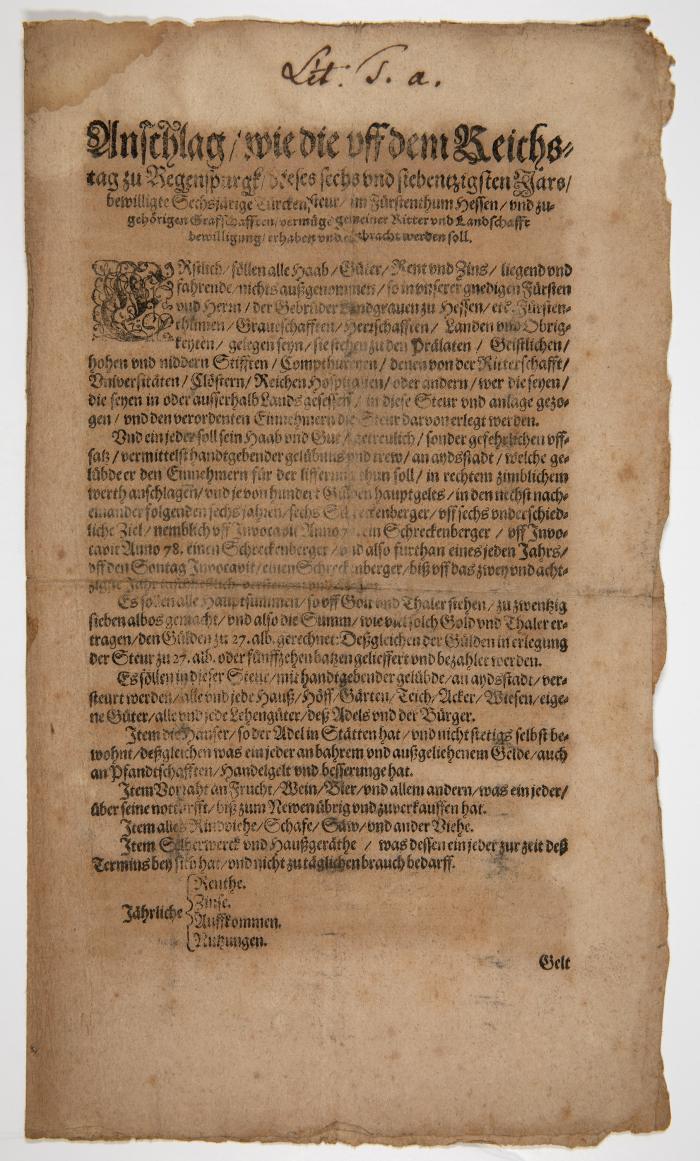 Lit. T. a.
Anschlag / wie die vff dem Reichs-
tag zu Regenspurgk / dieses sechs vnd siebentzigsten Jars /
bewilligte Sechsjärige Türcken steur / im Fürstenthum Hessen / vnd zu-
gehörigen Graffschafften / vermüge gemeiner Ritter vnd Landschafft
bewilligung / erhaben vnd eibracht werden soll.
ERstlich / söllen alle Haab / Güter / Rent vnd Zins / liegend vnd
fahrende / nichts außgenommen / so in vnserer gnedigen Fürsten
vnd Herrn / der Gebrüder Landgrauen zu Hessen / etc. Fürsten-
thümen / Graueschafften / Herrschafften / Landen vnd Obrig-
keyten / gelegen seyn / sie stehen zu den Prälaten / Geistlichen /
hohen vnd niddern Stifften / Compthureyen / denen von der Ritterschafft /
Vniversitäten / Clöstern / Reichen Hospitalen / oder andern / wer die seyen /
die seyen in oder ausserhalb Lands gesessen / in diese Steur vnd anlage gezo-
gen / vnd den verordenten Einnehmern die Steur darvon erlegt werden.
Vnd ein jeder soll sein Haab vnd Gut / getreulich / sonder gefehrlichen vff-
satz / vermittelst handtgebender gelübnus vnd trew / an aydsstadt / welche ge-
lübde er den Einnehmern für der lifferung thun soll / in rechtem zimblichem
werth anschlagen / vnd je von hundert Gülden hauptgelts / in den nechst nach-
einander folgenden sechs jahren / sechs Schreckenberger / vff sechs vnderschied-
liche Ziel / nemblich vff Invocavit Anno 77. ein Schreckenberger / vff Invo-
cavit Anno 78. einen Schreckenberger / vnd also furthan eines jeden Jahrs /
vff den Sontag Invocavit / einen Schreckenberger / biß vff das zwey vnd acht-
zigste Jahr
Es söllen alle Hauptsummen / so vff Golt vnd Thaler stehen / zu zwentzig
sieben albos gemacht / vnd also die Summ / wie viel solch Gold vnd Thaler er-
tragen / den Gülden zu 27. alb. gerechnet: Deßgleichen der Gülden in erlegung
der Steur zu 27. alb. oder fünffzehen batzen gelieffert vnd bezahlet werden.
Es söllen in dieser Steur / mit handtgebender gelübde / an aydsstadt / ver-
steurt werden / alle vnd jede Hauß / Höff / Gärten / Teich / Acker / Wiesen / eige-
ne Güter / alle vnd jede Lehengüter / deß Adels vnd der Bürger.
Item die Häuser / so der Adel in Stätten hat / vnd nicht stetigs selbst be-
wohnt / deßgleichen was ein jeder an bahrem vnd außgeliehenem Gelde / auch
an Pfandtschafften / Handelgelt vnd besserunge hat.
Item Vorraht an Frucht / Wein / Bier / vnd allem andern / was ein jeder /
über seine notturfft / biß zum Newen übrig vnd zuverkauffen hat.
Item alles Rindviehe / Schafe / Säw / vnd ander Viehe.
Item Silberwerck vnd Haußgeräthe / was dessen ein jeder zur zeit deß
Termins bey sich hat / vnd nicht zu täglichen brauch bedarff.
Jährliche
Renthe.
Zinse.
Auffkommen.
Nutzungen.
Gelt